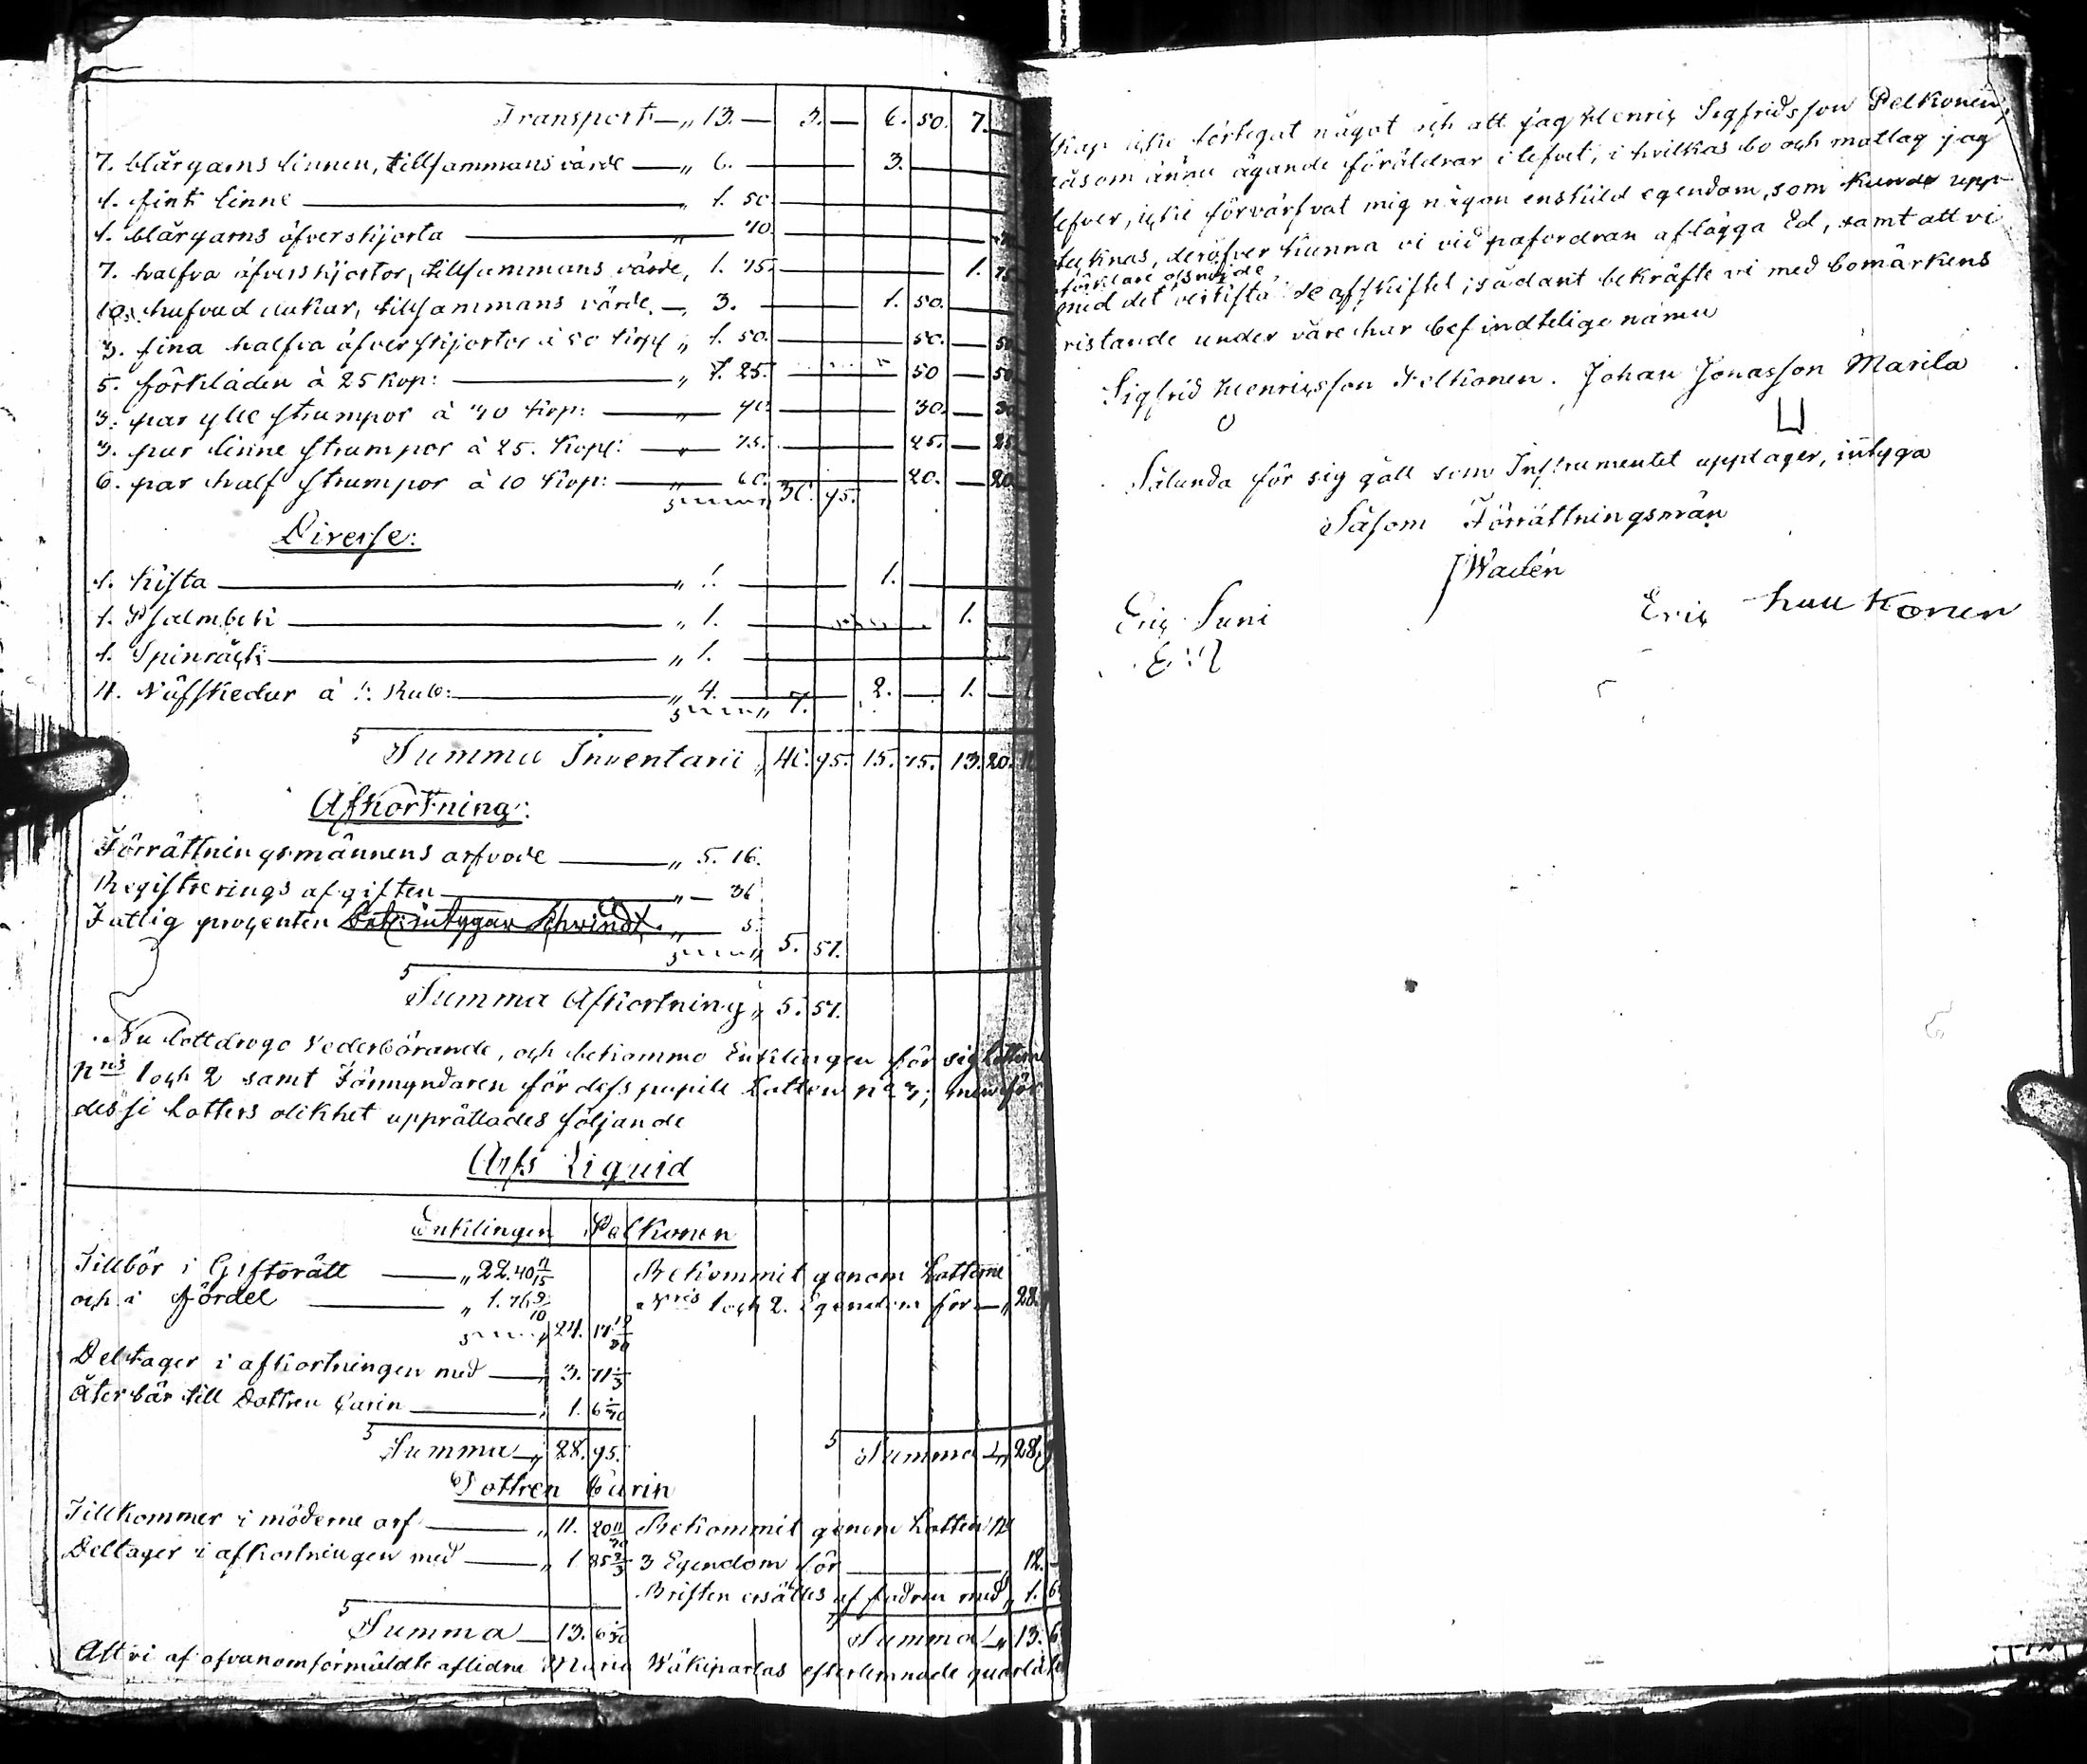 Transport — „ 13. — 3. — 6. 50. 7. —
7. blårgarns linnen, tillsammans värde — „ 6. — 3. —
1. fint linne — „ 1. 50
1. blårgarns öfverskjorta — „ — 70.
7. halfva öfverskjortor, tillsammans värde, 1. 75. — 1. 75
10. hufvud dukar, tillsammans värde. — „ 3. — 1. 50. —
3. fina halfva öfverskjortor à 50 kop: „ 1. 50. — 50. — 50
5. förkläden à 25 kop: — „ 1. 25. — 50 — 50
3. par ylle strumpor à 30 kop: — „ — 90. — 30. — 30
3. par linne strumpor à 25. kop: — „ — 75. — 25. — 25
6. par half strumpor à 10 kop: — „ — 60. — 20. — 20
95.
Diverse:
1. Kista — „ 1. — 1. —
1. Psalmbok — „ 1. — 1. —
1. Spinråck — „ 1. — 1
4. Nöfskedar à 1. Rub: — „ 4. — 7. — 2. — 1. — 1
Summa Inventarii „ 95. 15. 75. 13. 20.
Afkortning:
Förrättningsmännens arfvode — „ 5. 16.
Registrerings afgiften — „ — 36
Fattig procenten „ — 5.
5. 57.
Summa Afkortning „ 5. 57.
Nu lottdrogo vederbörande, och bekommo Enklingen för sig Lotterne
Nris 1 och 2 samt Förmyndaren för dess pupill Lotten No 3; men för
desse Lotters olikhet upprättades följande
Arfs Liquid
Enklingen Pelkonen
Tillbör i Giftorätt — „ 22. 40 11/15 Bekommit genom Lotterne
och i fördel — „ 1. 76 9/10 Nris 1 och 2. Egendom för — „ 28.
24. 17
Deltager i afkortningen med — „ 3. 71 1/3
Återbär till Dottren Carin — „ 1. 6
Summa — „ 28. 95. Summa — „ 28.
Dottren Carin
Tillkommer i möderne arf — „ 11. 20 Bekommit genom Lotten N
Deltager i afkortningen med — „ 1. 85 2/3 3 Egendom för — „ 12. —
Bristen ersättes af fadren med „ 1. 6
Summa — 13. 6 Summa — „ 13. 6
Att vi af ofvanomförmäldte aflidne Maria Wäkiparlas efterlemnade quarlåten
skap icke förtegat något och att jag Henric Sigfridsson Pelkonen,
såsom ännu ägande föräldrar i lefvet, i hvilkas bo och matlag jag
lefver, icke förvärfvat mig någon enskild egendom, som kunde upp
teknas, deröfver kunna vi vid påfordran aflägga Ed, samt att vi
förklare oss nöjde
med det afskiftet; sådant bekräfte vi med bomärkens
ristande under våre här befindtelige namn
Sigfrid Henricsson Pelkonen. Johan Jonasson Marila
Sålunda för sig gått som Instrumentet upptager, intyga
Såsom Förrättningsmän
J Wadén
Eric Suni Eric Kukkonen